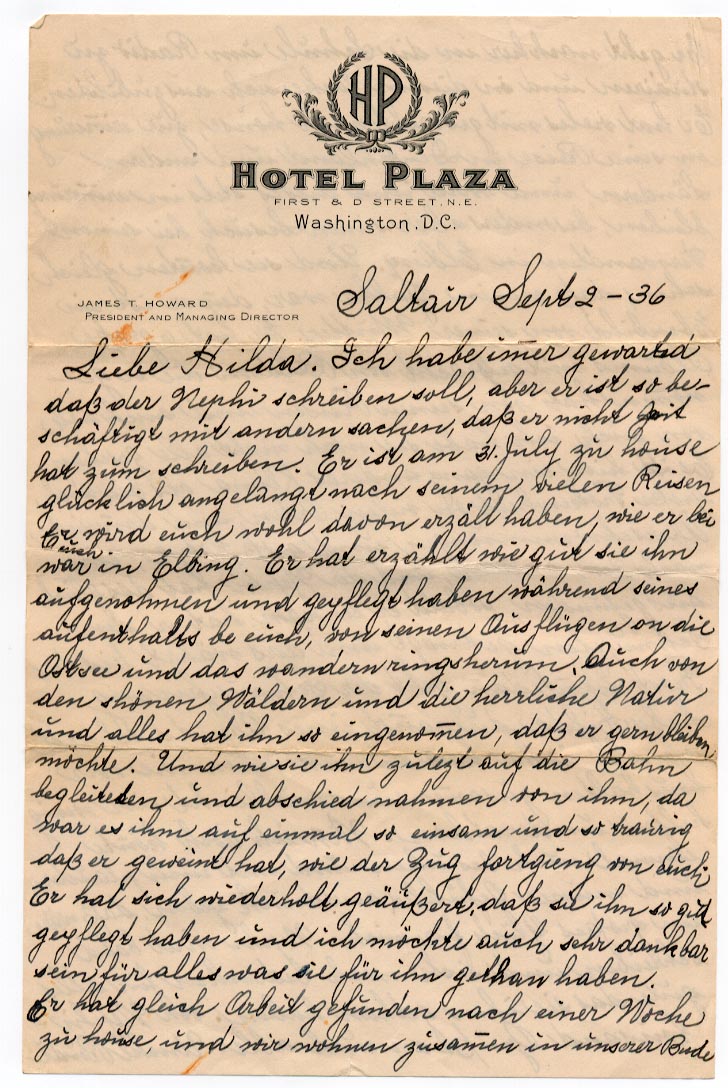 HP
HOTEL PLAZA
FIRST & D STREET. N.E.
Washington, D.C.
JAMES T. HOWARD
PRESIDENT AND MANAGING DIRECTOR
Saltair Sept 2 - 36
Liebe Hilda. Ich habe im̅er gewarted
daß der Nephi schreiben soll, aber er ist so be-
schäftigt mit andern sachen, daß er nicht Zeit
hat zum schreiben. Er ist am 31. July zu house
glücklich angelangt nach seinem vielen Reisen
Er wird euch wohl davon erzält haben, wie er bei
euch
war in Elbing. Er hat erzählt wie gut sie ihn
aufgenohmen und gepflegt haben während seines
aufenthalts be euch, von seinen Ausflügen on die
Ostsee und das wandern ringsherum. Auch von
den shönen Wäldern und die herrliche Natur
und alles hat ihn so eingenom̅en, daß er gern bleiben
möchte. Und wie sie ihn zulezt auf die Bahn
begleiteden und abschied nahmen von ihm, da
war es ihm auf einmal so einsam und so traurig
daß er geweint hat, wie der Zug fortgieng von euch
Er hat sich wiederholt geäußert, daß sie ihn so gut
gepflegt haben und ich möchte auch sehr dankbar
sein für alles was sie für ihn gethan haben.
Er hat gleich Arbeit gefunden nach einer Woche
zu house, und wir wohnen zusam̅en in unserer Bude